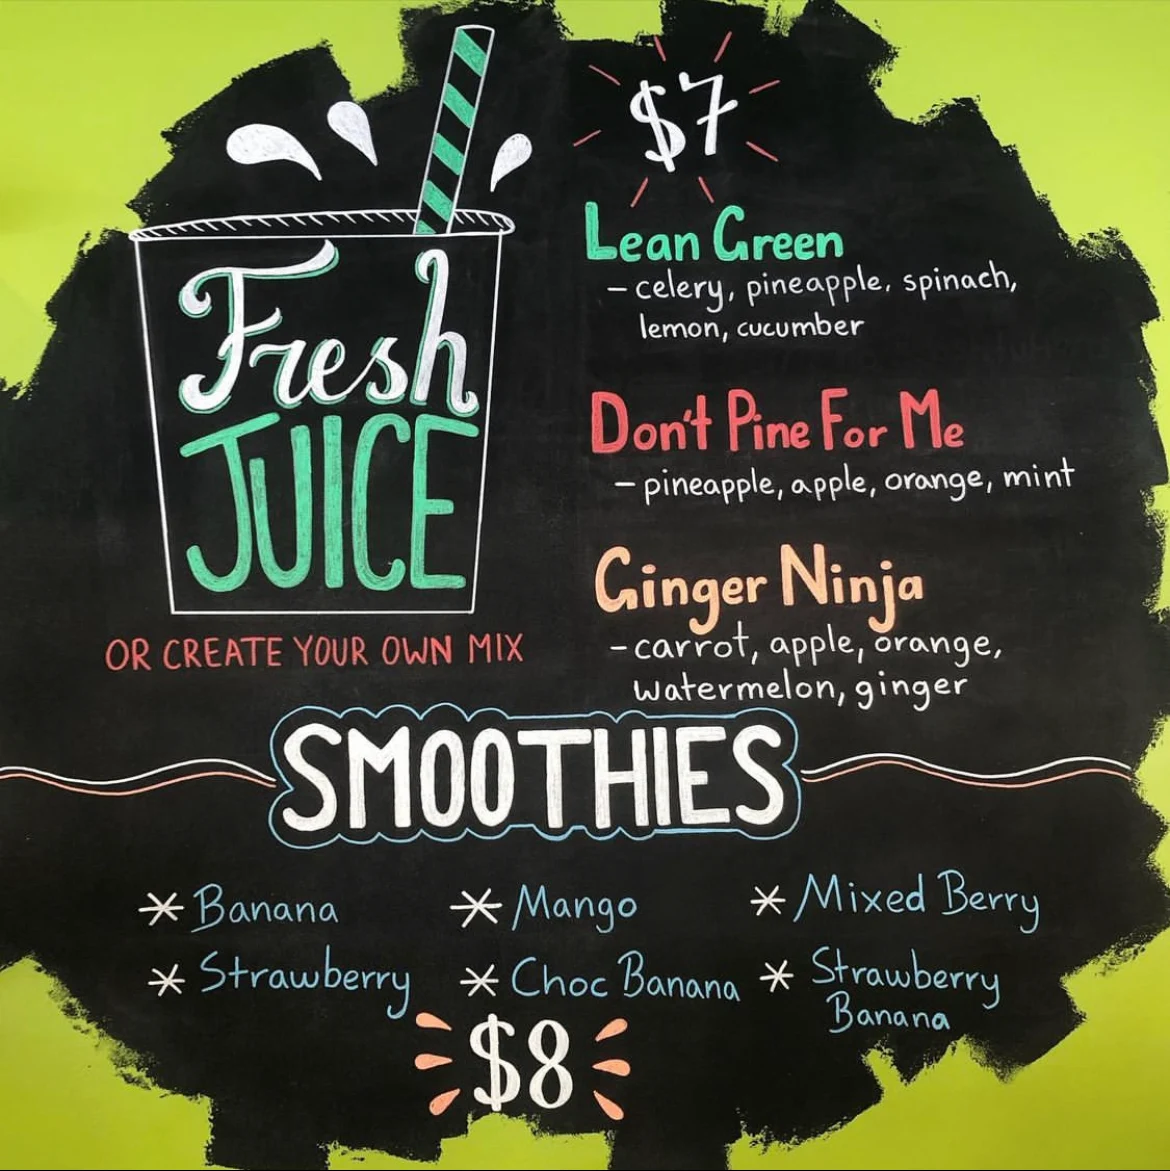 Fresh
JUICE
OR CREATE YOUR OWN MIX
$7
Lean Green
- celery, pineapple, spinach,
lemon, cucumber
Don't Pine For Me
- pineapple, apple, orange, mint
Ginger Ninja
- carrot, apple, orange,
watermelon, ginger
SMOOTHIES
* Banana * Mango * Mixed Berry
* Strawberry * Choc Banana * Strawberry
Banana
$8